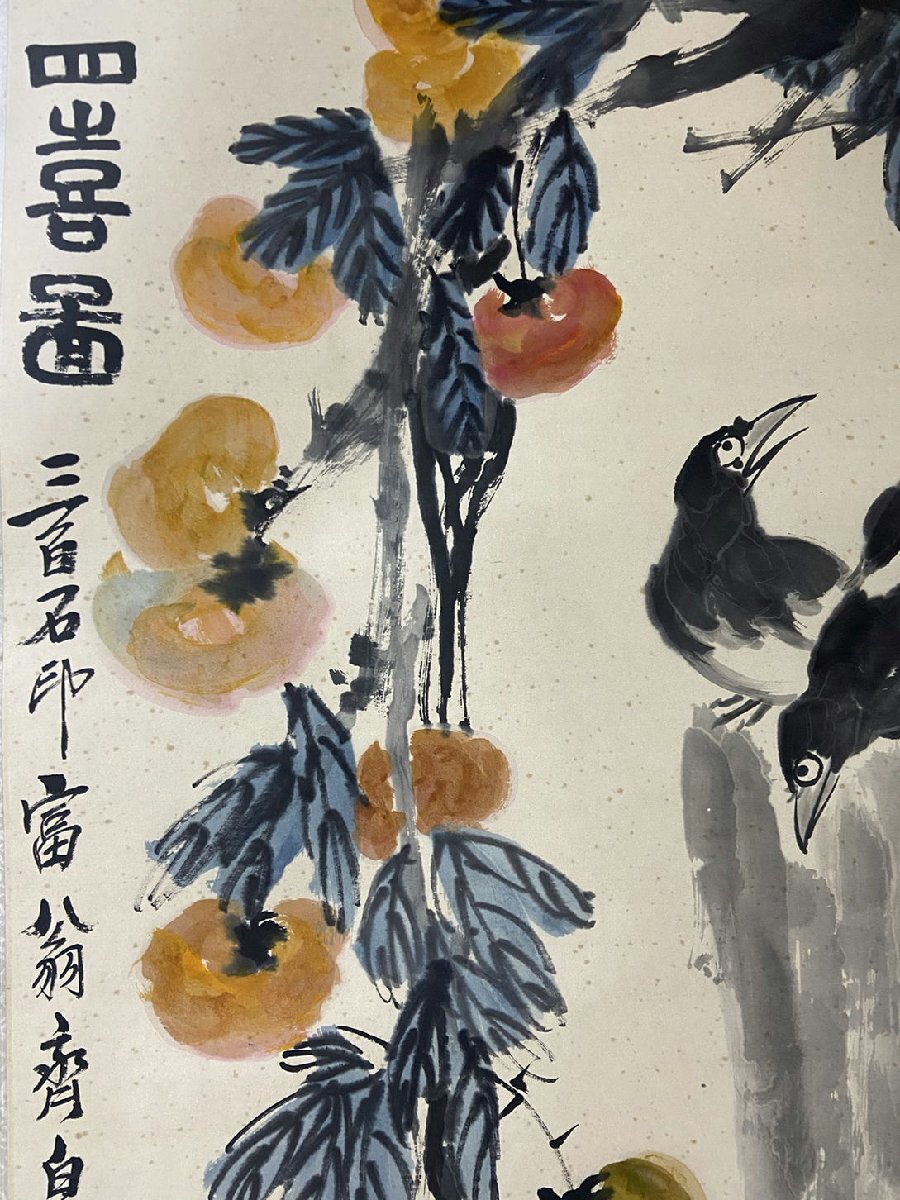 四喜圖
三百石印富翁齊白